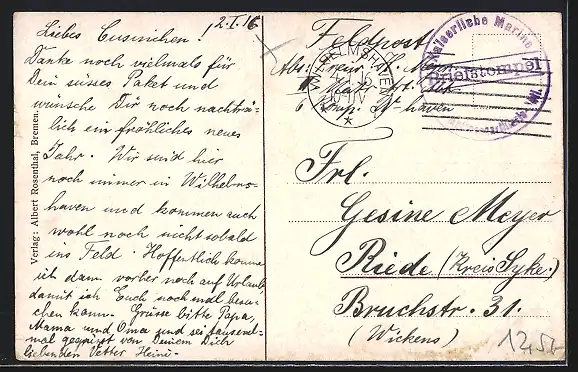 2.I.16
Liebes Cusinchen!
Danke noch vielmals für
Dein süsses Paket und
wünsche Dir noch nachträ-
lich ein fröhliches neues
Jahr. Wir sind hier
noch immer in Wilhelms-
haven und kommen auch
wohl noch nicht sobald
ins Feld. Hoffentlich komme
ich dann vorher noch auf Urlaub
damit ich Euch noch mal besu-
chen kann. Grüsse bitte Papa,
Mama und Oma und sei tausend-
mal gegrüsst von Deinem Dich
liebenden Vetter Heini.
Verlag: Albert Rosenthal, Bremen.
Feldpost
Abs: H.
WILHELMSHAVEN
Kaiserliche Marine
Briefstempel
Frl.
Gesine Meyer
Riede (Kreis Syke.)
Bruchstr. 31.
(Wickens)